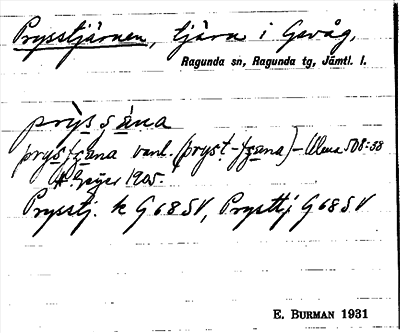 Prysstjärnen, tjärn i Gevåg,
Ragunda sn, Ragunda tg, Jämtl. l.
prỳs sàna
vanl. (pryst-
Geijer 1905
Prysstj. k G68SV, Prysttj G68SV
E. BURMAN 1931